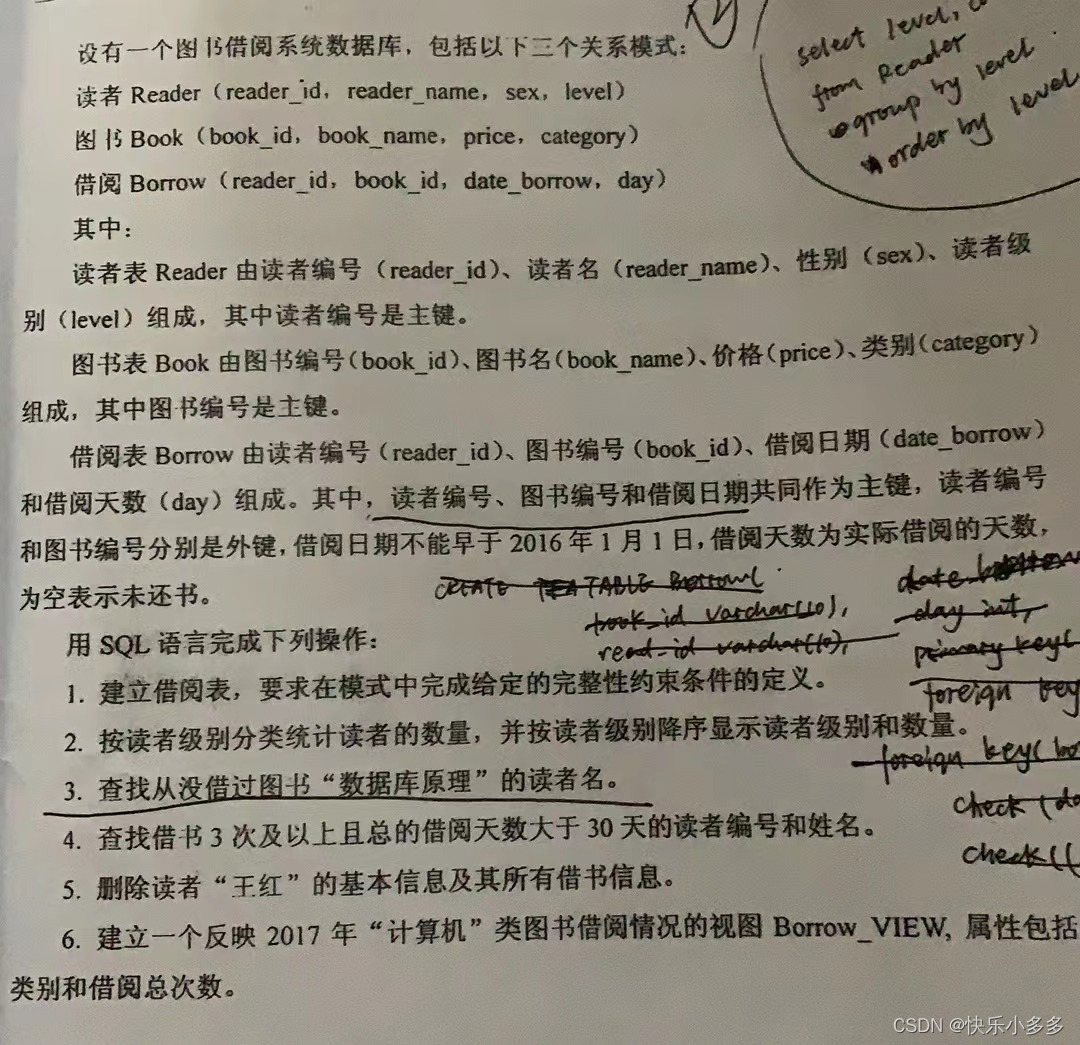 设有一个图书借阅系统数据库，包括以下三个关系模式：
读者 Reader（reader_id，reader_name，sex，level）
图书 Book（book_id，book_name，price，category）
借阅 Borrow（reader_id，book_id，date_borrow，day）
select level,
from Reader
group by level
order by level
其中：
读者表 Reader 由读者编号（reader_id）、读者名（reader_name）、性别（sex）、读者级
别（level）组成，其中读者编号是主键。
图书表 Book 由图书编号（book_id）、图书名（book_name）、价格（price）、类别（category）
组成，其中图书编号是主键。
借阅表 Borrow 由读者编号（reader_id）、图书编号（book_id）、借阅日期（date_borrow）
和借阅天数（day）组成。其中，读者编号、图书编号和借阅日期共同作为主键，读者编号
和图书编号分别是外键，借阅日期不能早于 2016 年 1 月 1 日，借阅天数为实际借阅的天数，
为空表示未还书。
CREATE TABLE Borrow(
book_id varchar(10),
read_id varchar(10),
date
day int,
primary key(
foreign key
foreign key(bo
check (da
check((
用 SQL 语言完成下列操作：
1. 建立借阅表，要求在模式中完成给定的完整性约束条件的定义。
2. 按读者级别分类统计读者的数量，并按读者级别降序显示读者级别和数量。
3. 查找从没借过图书“数据库原理”的读者名。
4. 查找借书 3 次及以上且总的借阅天数大于 30 天的读者编号和姓名。
5. 删除读者“王红”的基本信息及其所有借书信息。
6. 建立一个反映 2017 年“计算机”类图书借阅情况的视图 Borrow_VIEW, 属性包括
类别和借阅总次数。
CSDN @快乐小多多